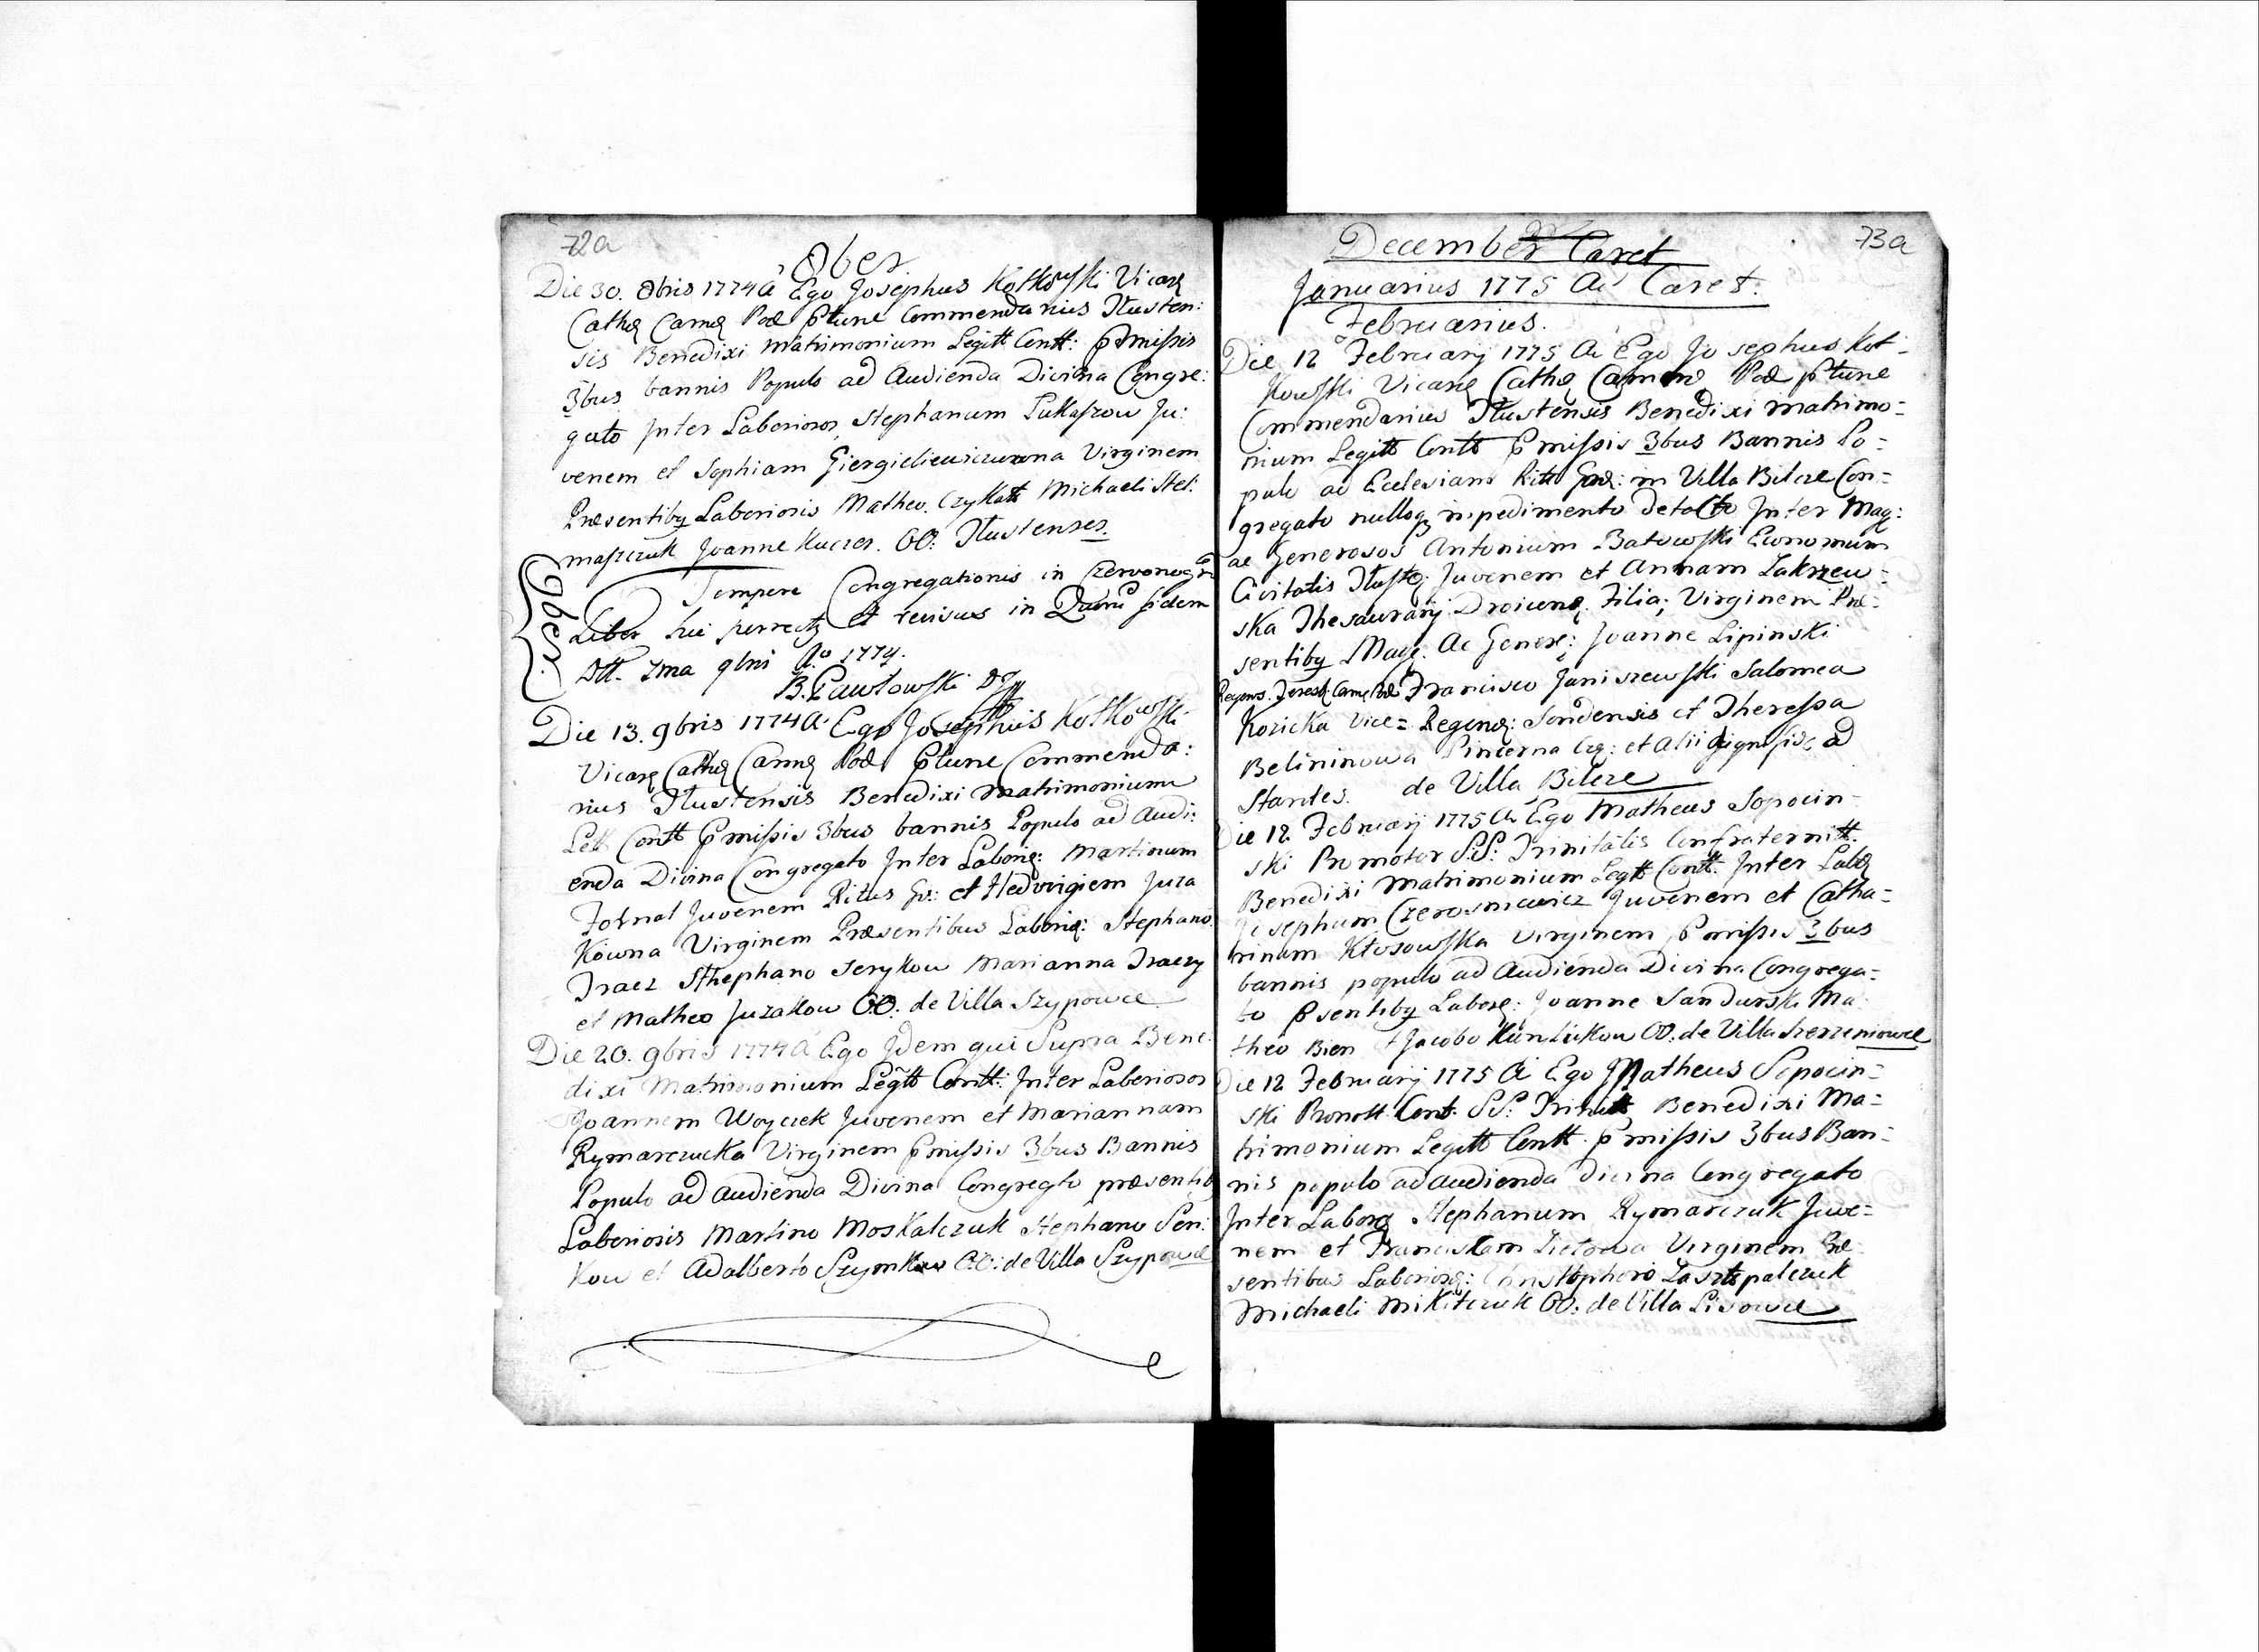 72a
8ber
Die 30. 8bris 1774 A Ego Josephus Kotkowski Vicar
Cathq Camq Pod ptunc Commendarius Tłusten:
sis Benedixi Matrimonium Legitt Contt: pmissis
3bus bannis Populo ad Audienda Divina Congre:
gato Inter Laboriosos Stephanum Łukaszow Ju:
venem et Sophiam Giergieliewiczuwna Virginem
Præsentibq Laboriosis Matheo Czykatt Michaeli Stel:
maszczuk Joanne Kuczer. OO: Tłustenses.
9ber.
Tempore Congregationis in Czerwonogr
Liber hic et revisus in Quam fidem
Dtt. 7ma 9bris Ao 1774.
B. Pawłowski
Die 13. 9bris 1774 A Ego Josephus Kotkowski
Vicarq Cathq Camq Pod ptunc Commenda:
rius Tłustensis Benedixi Matrimonium
Lett Contt pmissis 3bus bannis Populo ad Audi:
enda Divina Congregato Inter Laboriq: Martinum
Fornal Juvenem Ritus Gr: et Hedvigiem Juza
Kowna Virginem Præsentibus Laboriq: Stephano
Tracz Sthephano Serykow Marianna Traczy
et Matheo Juzakow OO. de Villa Szypowce
Die 20. 9bris 1774 A Ego Idem qui Supra Bene:
dixi Matrimonium Legtt Contt: Inter Laboriosos
Joannem Woyciek Juvenem et Mariannam
Rymarczucka Virginem pmissis 3bus Bannis
Populo ad Audienda Divina Congregto præsentib
Laboriosis Martino Moskalczuk Stephano Seri
Kow et Adalberto Szymkow OO: de Villa Szypowce
73a
December Caret
Januarius 1775 Ai Caret.
Februarius.
Die 12 Februarij 1775 Ai Ego Josephus Kot-
kowski Vicarq Cathq Camenq Pod ptunc
Commendarius Tłustensis Benedixi Matrimo=
nium Legitt Contt pmissis 3bus Bannis Po=
pulo ad Ecclesiam Ritt Græ: in Villa Bilcze Con=
gregato nulloq inpedimento detecto Inter Mag:
ac Generosos Antonium Batowski Economum
Civitatis Tłustq Juvenem et Annam Zakrzew=
ska Thesaurarij Filia; Virginem Præ=
sentibq Magq. Ac Generq: Joanne Lipinski
Regens. Camq Pod Francisco Janiszewski Salomea
Kozicka Vice= Regenq: et Theressa
Belininowa Pincerna et Alii digni fide ad
Stantes. de Villa Bilcze
Die 12 Februarij 1775 Ai Ego Matheus Sopocin-
ski Promotor S:S: Trinitatis Confraternitt.
Benedixi Matrimonium Legtt Contt. Inter Labq
Josephum Czerosniewicz Juvenem et Catha=
rinam Kłosowska Virginem pmissis 3bus
bannis populo ad Audienda Divina Congrega=
to psentibq Laborq: Joanne Sandurski Ma
theo Bien Jacobo Kundukow OO: de Villa Szerszeniowce
Die 12 Februarij 1775 Ai Ego Matheus Sopocin=
ski Promott Cont. S:S: Trinitt Benedixi Ma=
trimonium Legitt Contt. pmissis 3bus Ban=
nis populo ad Audienda divina Congregato
Inter Laborq Stephanum Rymarczuk Juve=
nem et Franciskam Virginem Præ
sentibus Laboriosq:
Michaeli Mikitczuk OO: de Villa Lisowce